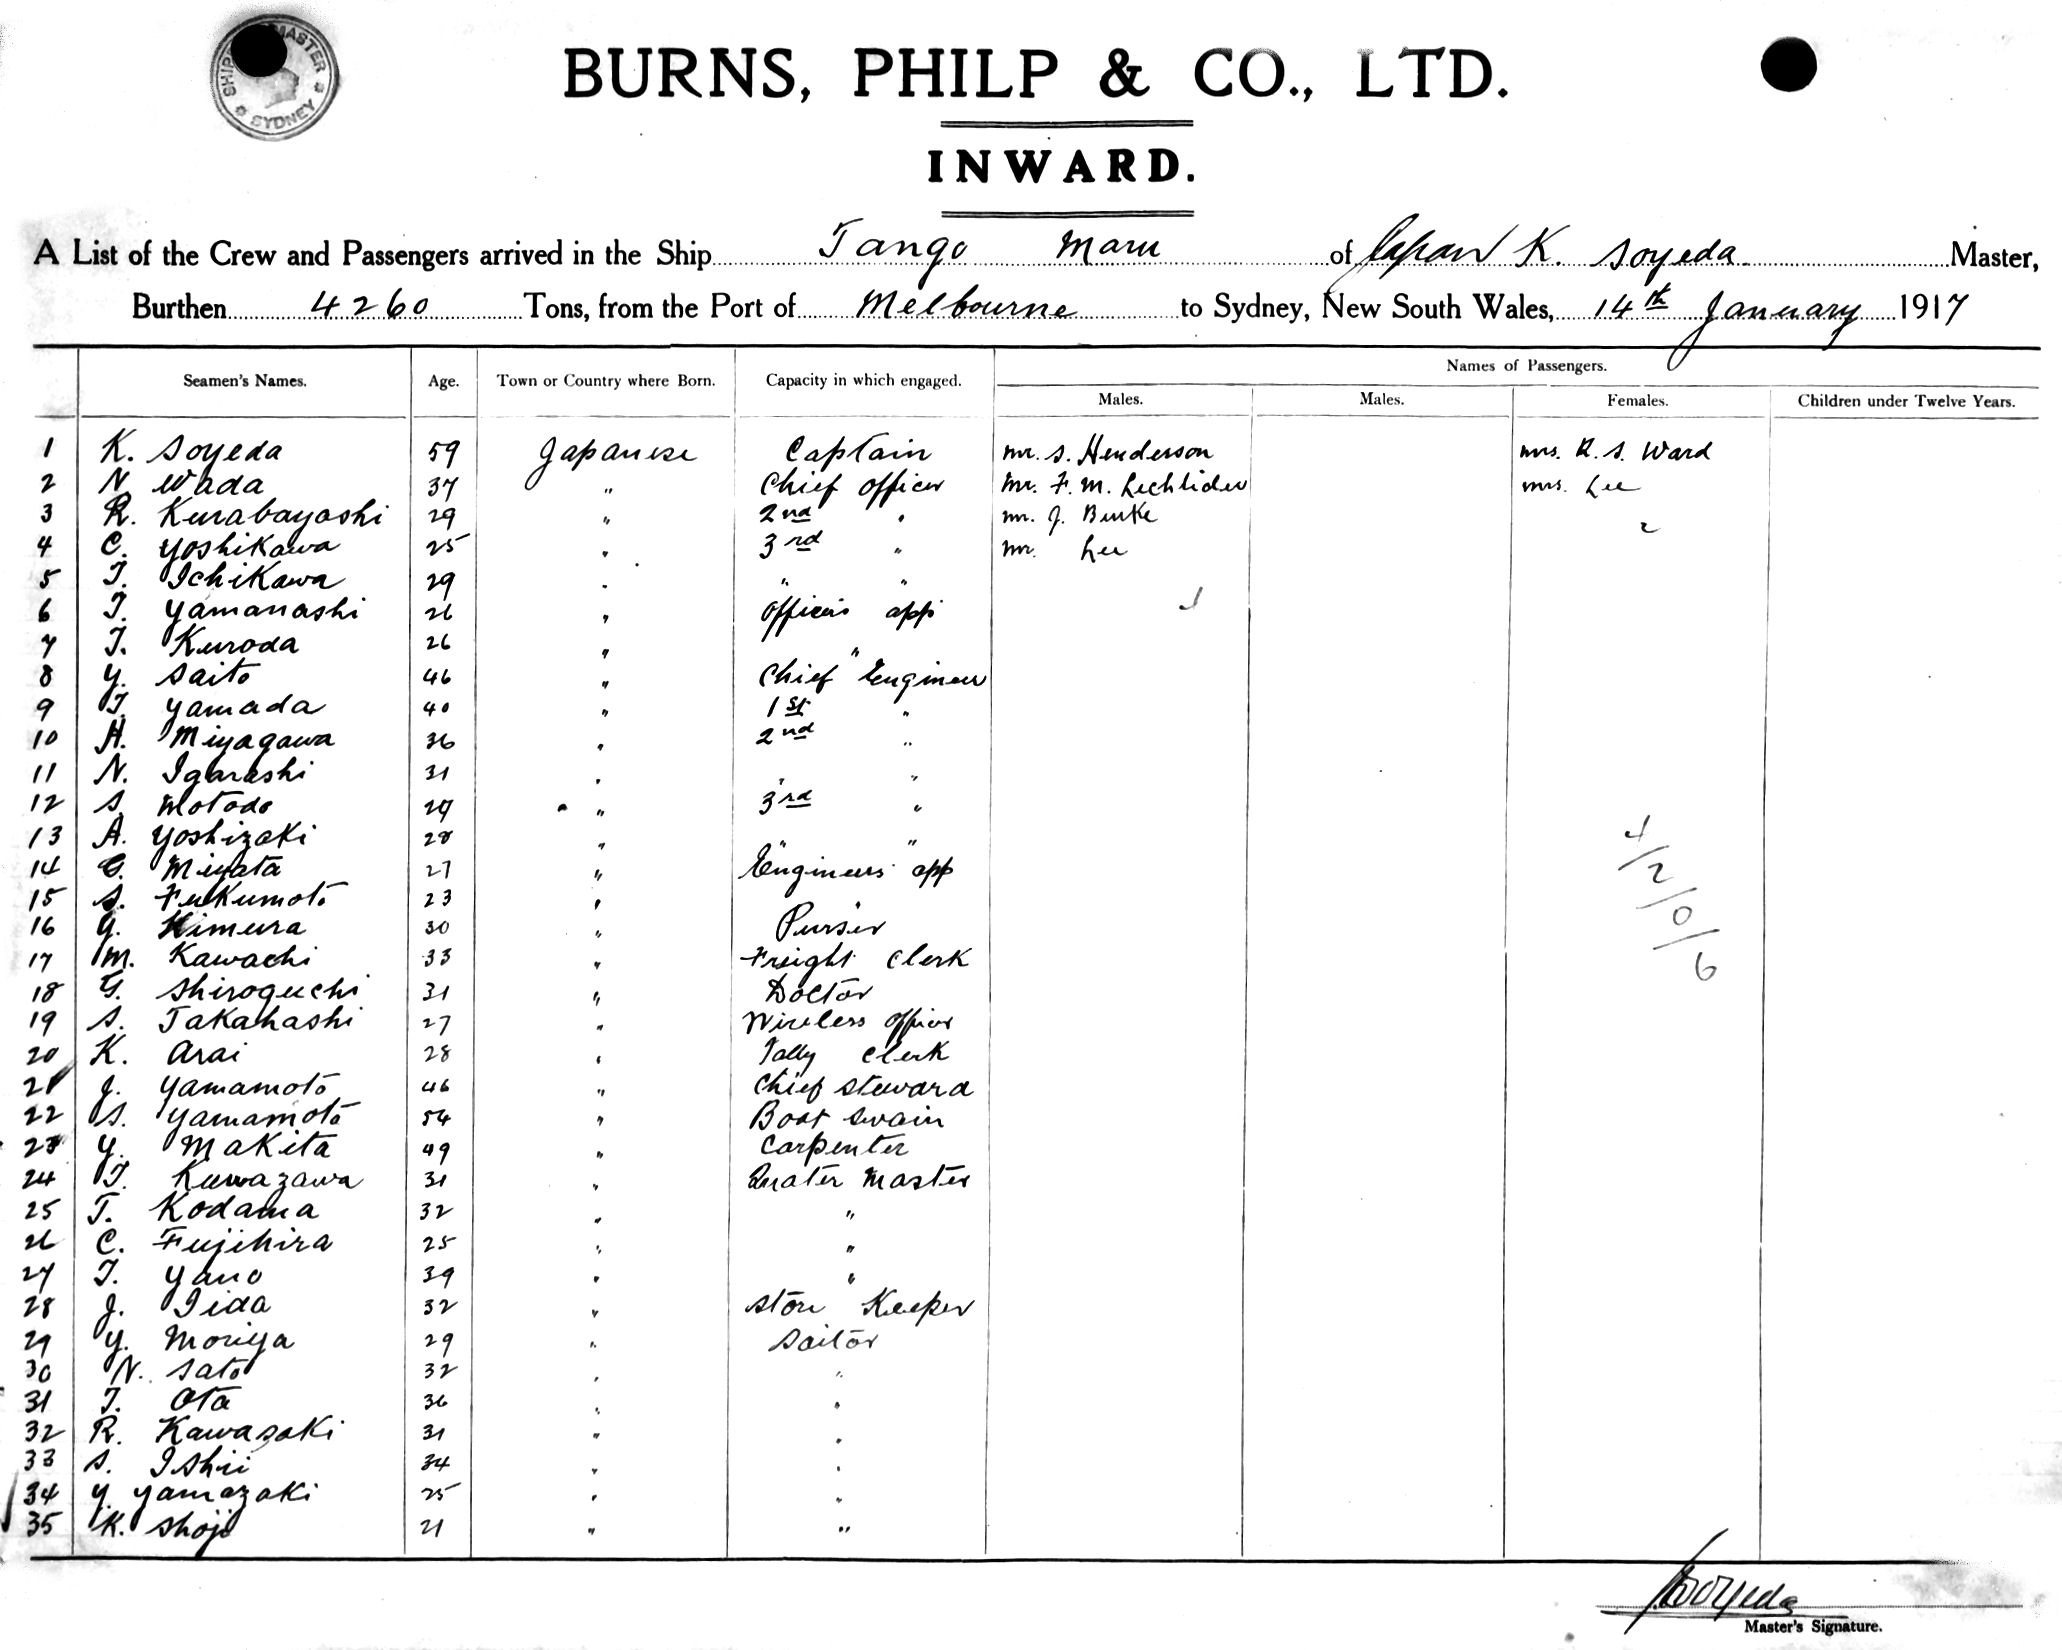 SHIPPING MASTER
SYDNEY
BURNS, PHILP & CO., LTD.
INWARD.
A List of the Crew and Passengers arrived in the Ship Tango Maru of Japan K. Soyeda Master,
Burthen 4260 Tons, from the Port of Melbourne to Sydney, New South Wales, 14th January 1917
Names of Passengers.
Seamen's Names. Age. Town or Country where Born. Capacity in which engaged. Males. Males. Females. Children under Twelve Years.
1 K. Soyeda 59 Japanese Captain Mr. S. Henderson Mrs. R. S. Ward
2 N Wada 37 " Chief Officer Mr. F. M. Lechlider Mrs. Lee
3 R. Kurabayashi 29 " 2nd " Mr. J. Burke 2
4 C. Yoshikawa 25 " 3rd " Mr. Lee
5 T. Ichikawa 29 " " "
6 T. Yamanashi 26 " Officers app 4
7 T. Kuroda 26 " "
8 Y. Saito 46 " Chief Engineer
9 T. Yamada 40 " 1st "
10 H. Miyagawa 36 " 2nd "
11 N. Igarashi 31 " " "
12 S. Motodo 29 " 3rd "
13 A. Yoshizaki 28 " " "
14 G. Miyata 27 " Engineers app
15 S. Fukumoto 23 " "
16 G. Kimura 30 " Purser
17 M. Kawachi 33 " Freight Clerk
18 G. Shiroguchi 31 " Doctor
19 S. Takahashi 27 " Wireless Officer
20 K. Arai 28 " Tally Clerk
21 J. Yamamoto 46 " Chief Steward
22 S. Yamamoto 54 " Boat Swain
23 Y. Makita 49 " Carpenter
24 T. Kuwazawa 31 " Quater Master
25 T. Kodama 32 " "
26 C. Fujihira 25 " "
27 T. Yano 39 " "
28 J. Iida 32 " Store Keeper
29 Y. Moriya 29 " Sailor
30 N. Sato 32 " "
31 T. Ota 36 " "
32 R. Kawasaki 31 " "
33 S. Ishii 34 " "
34 Y. Yamazaki 25 " "
35 K. Shoji 21 " "
4/2/0/6
Soyeda
Master's Signature.